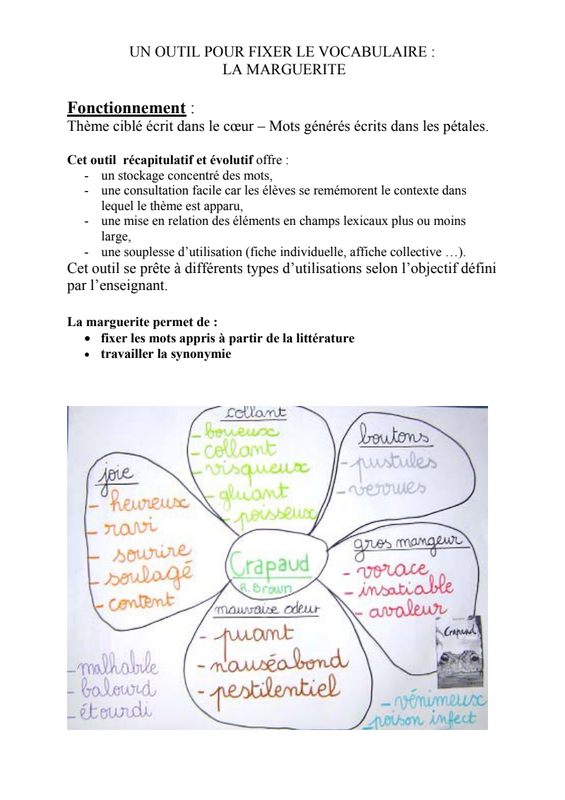 UN OUTIL POUR FIXER LE VOCABULAIRE :
LA MARGUERITE
Fonctionnement :
Thème ciblé écrit dans le cœur – Mots générés écrits dans les pétales.
Cet outil récapitulatif et évolutif offre :
- un stockage concentré des mots,
- une consultation facile car les élèves se remémorent le contexte dans
lequel le thème est apparu,
- une mise en relation des éléments en champs lexicaux plus ou moins
large,
- une souplesse d'utilisation (fiche individuelle, affiche collective …).
Cet outil se prête à différents types d'utilisations selon l'objectif défini
par l'enseignant.
La marguerite permet de :
• fixer les mots appris à partir de la littérature
• travailler la synonymie
collant
- boueux
- collant
- visqueux
- gluant
- poisseux
boutons
- pustules
- verrues
joie
- heureux
- ravi
- sourire
- soulagé
- content
Crapaud
R. Brown
gros mangeur
- vorace
- insatiable
- avaleur
mauvaise odeur
- puant
- nauséabond
- pestilentiel
Crapaud
- malhabile
- balourd
- étourdi
- vénimeux
poison infect